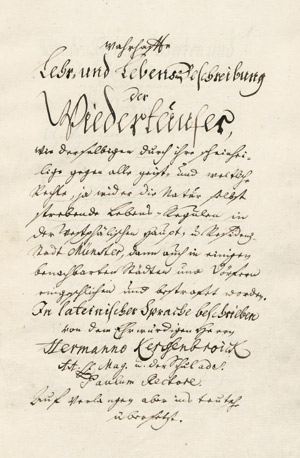 wahrhaffte
Lehr, und Lebens Beschreibung
der
Wiedertäufer,
wie derselbiger durch ihre scheinhei-
lige gegen alle geist- und weltliche
Rechte ja wider die Natur selbst
strebende Lebens-Regulen in
der Westphälischen haubt, u: Residenz-
Stadt Münster, dann auch in einigen
benachbarten Städten und Dörfern
eingeschlichen und bestrafft worden.
In lateinischer Sprache beschrieben
von dem Ehrwürdigen Herrn
Hermanno Kerssenbroick
Art: lib: Mag. u. der Schulade
Paulum Rectore.
Auf Verlangen aber ins teutsche
übersetzt.